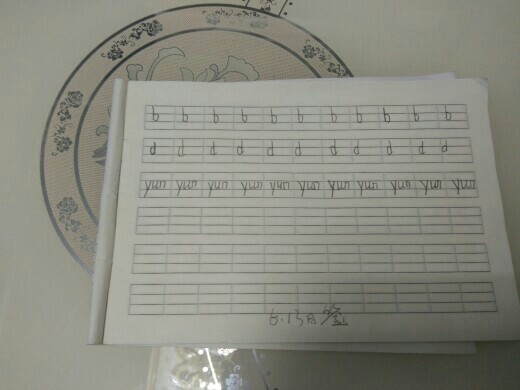 b b b b b b b b b b b
d d d d d d d d d d d
yun yun yun yun yun yun yun yun yun yun yun
6.13日